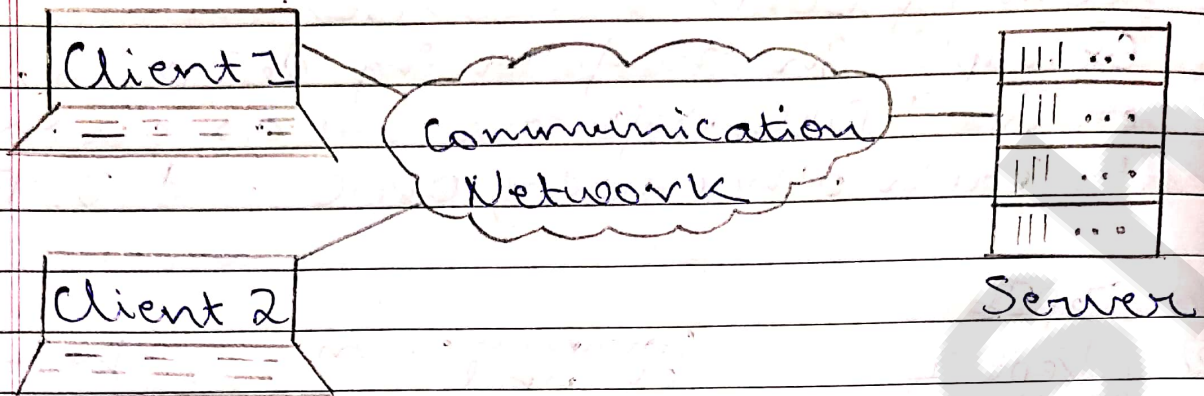 Client 1
Communication
Network
Client 2
Server